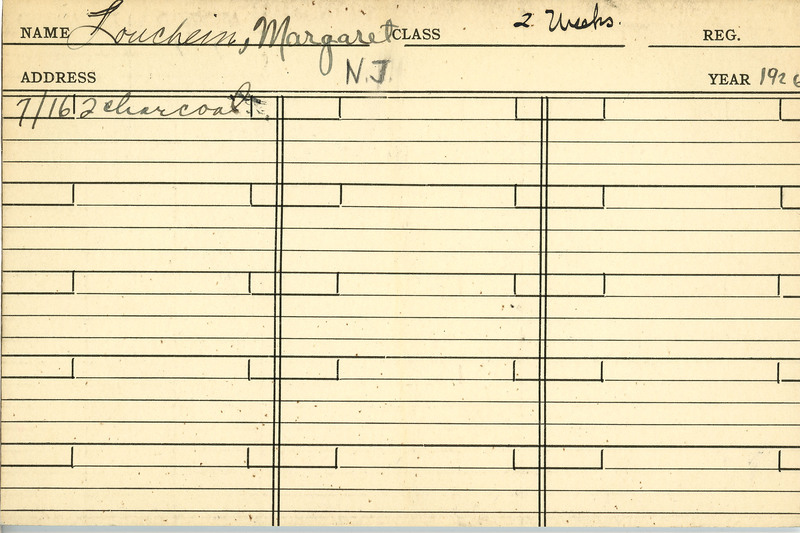 NAME Loucheim, Margaret CLASS 2 Weeks. REG.
ADDRESS N.J. YEAR 1926
7/16 2 charcoal